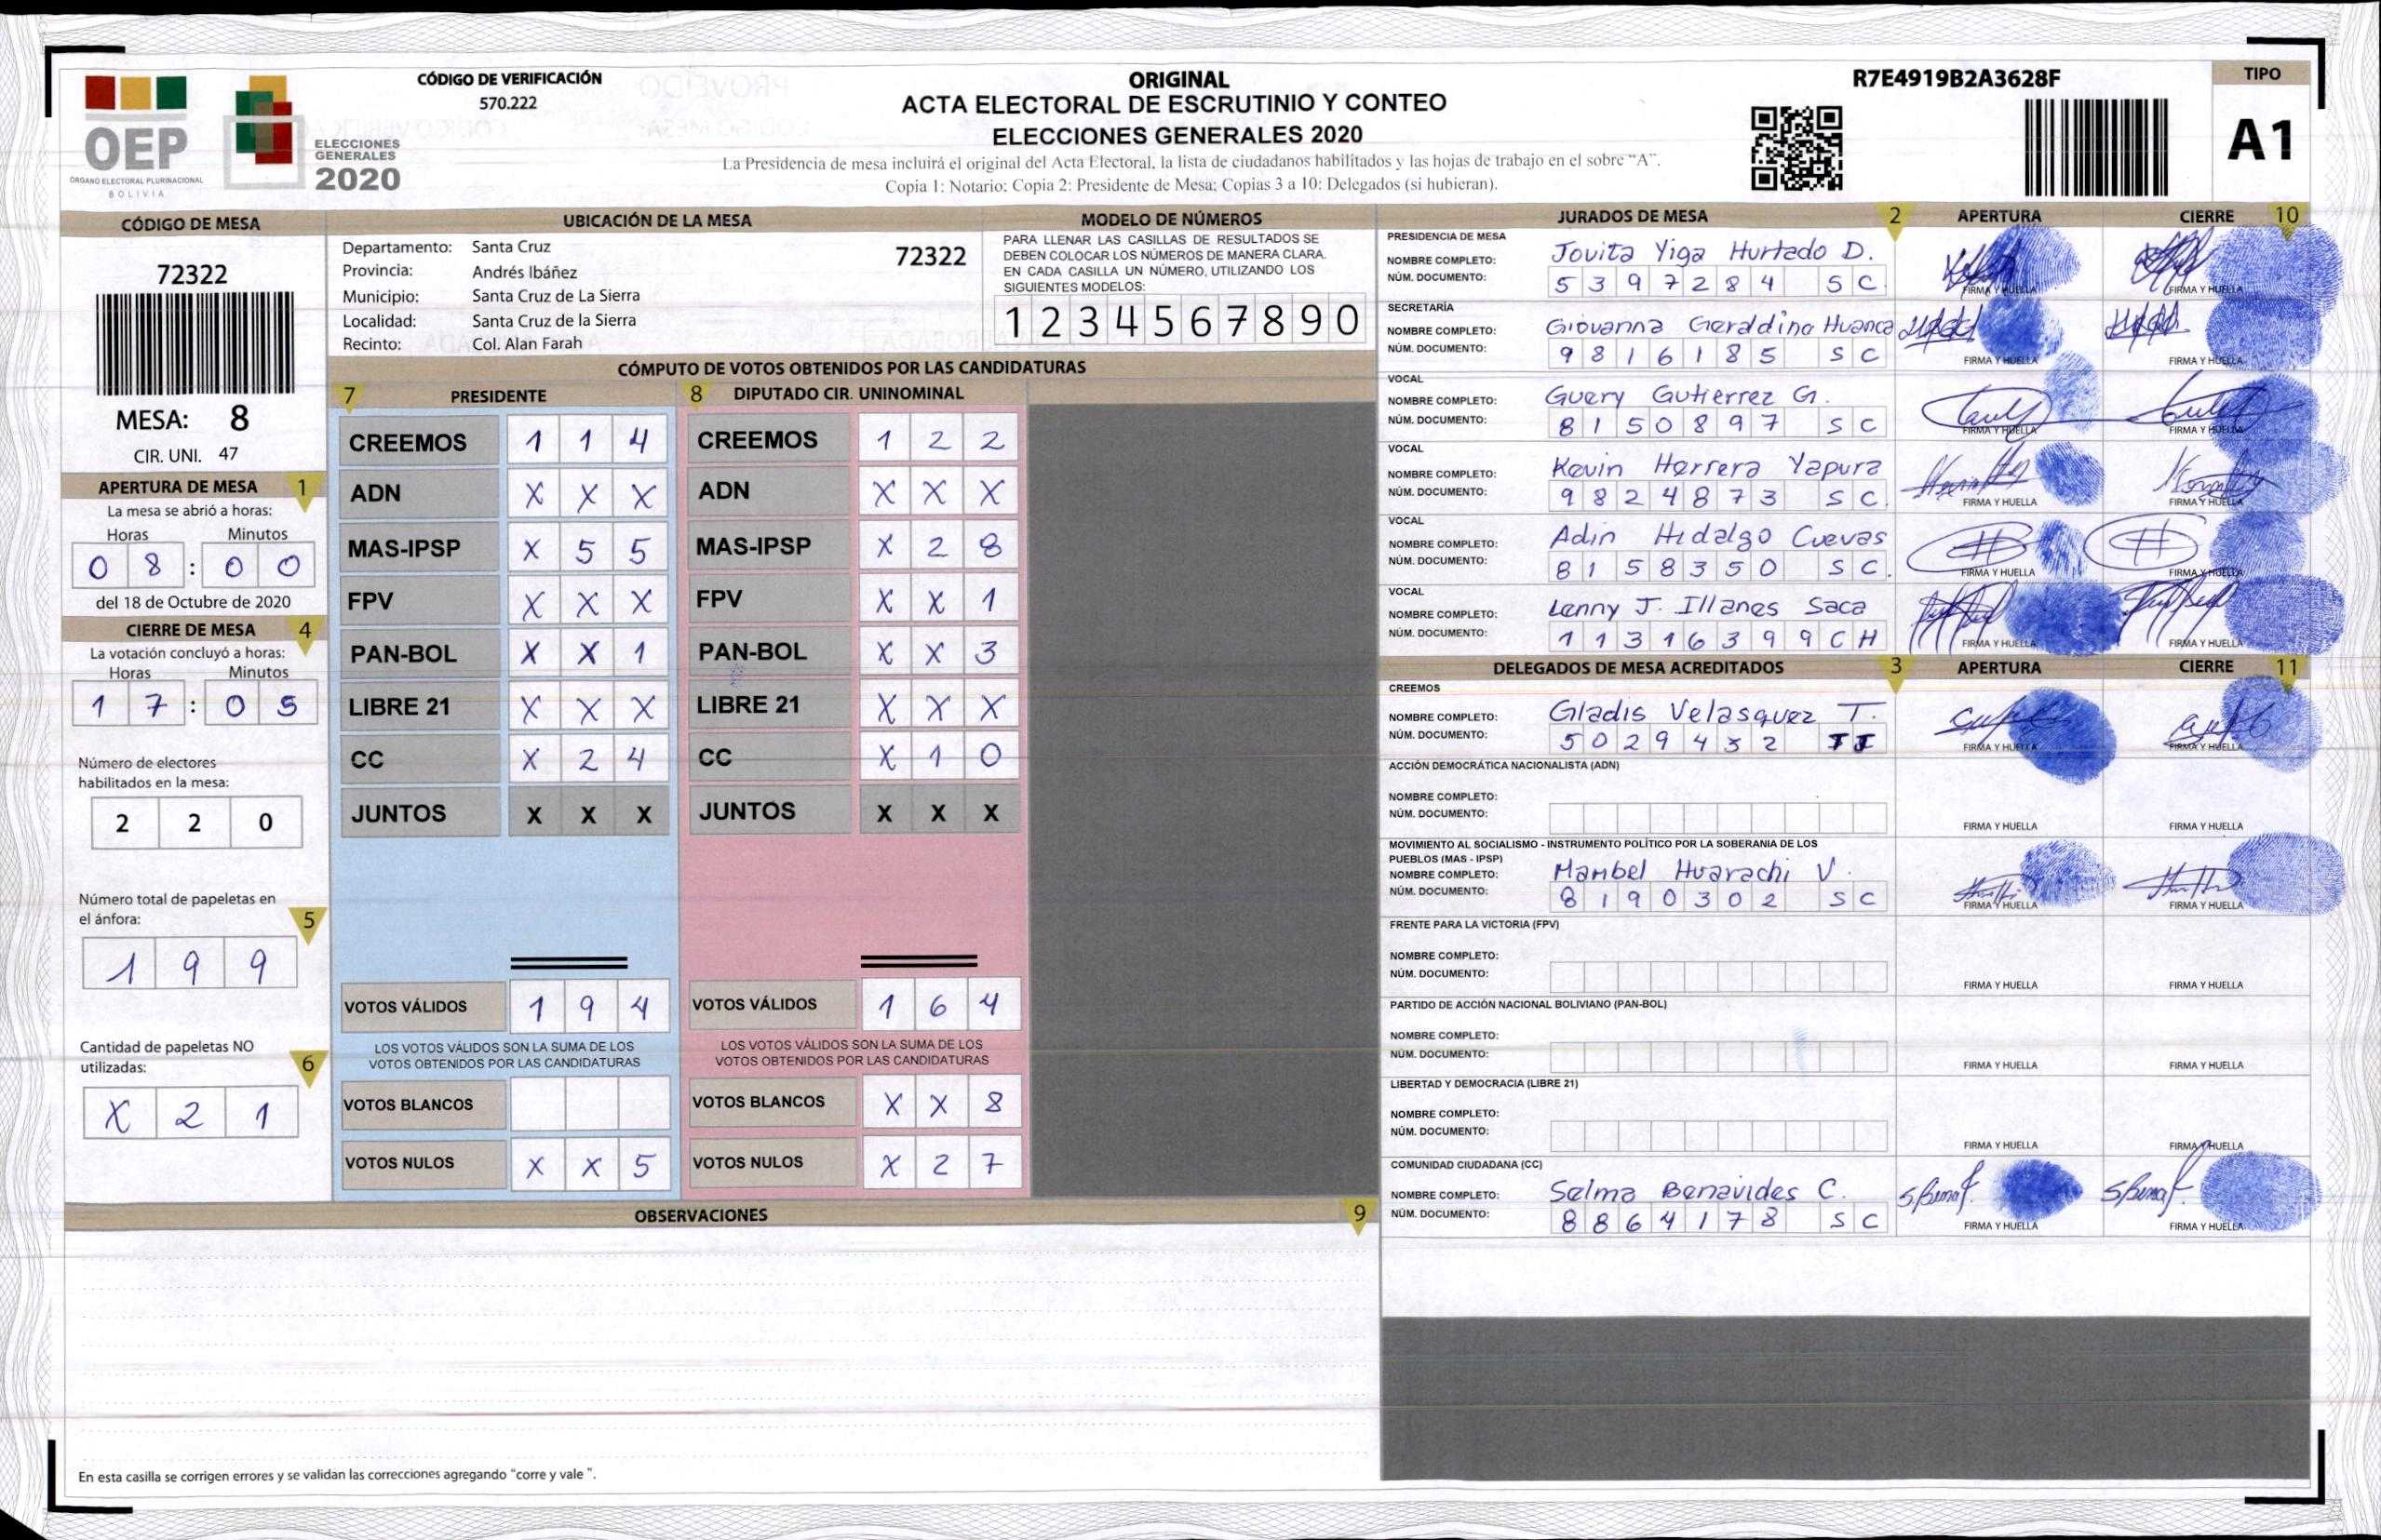 CÓDIGO DE VERIFICACIÓN
570.222
ORIGINAL
ACTA ELECTORAL DE ESCRUTINIO Y CONTEO
ELECCIONES GENERALES 2020
La Presidencia de mesa incluirá el original del Acta Electoral, la lista de ciudadanos habilitados y las hojas de trabajo en el sobre “A”.
Copia 1: Notario; Copia 2: Presidente de Mesa; Copias 3 a 10: Delegados (si hubieran).
R7E4919B2A3628F
TIPO
A1
OEP
ÓRGANO ELECTORAL PLURINACIONAL
BOLIVIA
ELECCIONES
GENERALES
2020
CÓDIGO DE MESA
72322
MESA: 8
CIR. UNI. 47
APERTURA DE MESA 1
La mesa se abrió a horas:
Horas Minutos
0 8 : 0 0
del 18 de Octubre de 2020
CIERRE DE MESA 4
La votación concluyó a horas:
Horas Minutos
1 7 : 0 5
Número de electores
habilitados en la mesa:
2 2 0
Número total de papeletas en
el ánfora: 5
1 9 9
Cantidad de papeletas NO
utilizadas: 6
X 2 1
UBICACIÓN DE LA MESA
Departamento: Santa Cruz 72322
Provincia: Andrés Ibáñez
Municipio: Santa Cruz de La Sierra
Localidad: Santa Cruz de la Sierra
Recinto: Col. Alan Farah
MODELO DE NÚMEROS
PARA LLENAR LAS CASILLAS DE RESULTADOS SE
DEBEN COLOCAR LOS NÚMEROS DE MANERA CLARA.
EN CADA CASILLA UN NÚMERO, UTILIZANDO LOS
SIGUIENTES MODELOS:
1 2 3 4 5 6 7 8 9 0
CÓMPUTO DE VOTOS OBTENIDOS POR LAS CANDIDATURAS
7 PRESIDENTE
CREEMOS 1 1 4
ADN X X X
MAS-IPSP X 5 5
FPV X X X
PAN-BOL X X 1
LIBRE 21 X X X
CC X 2 4
JUNTOS X X X
VOTOS VÁLIDOS 1 9 4
LOS VOTOS VÁLIDOS SON LA SUMA DE LOS
VOTOS OBTENIDOS POR LAS CANDIDATURAS
VOTOS BLANCOS
VOTOS NULOS X X 5
8 DIPUTADO CIR. UNINOMINAL
CREEMOS 1 2 2
ADN X X X
MAS-IPSP X 2 8
FPV X X 1
PAN-BOL X X 3
LIBRE 21 X X X
CC X 1 0
JUNTOS X X X
VOTOS VÁLIDOS 1 6 4
LOS VOTOS VÁLIDOS SON LA SUMA DE LOS
VOTOS OBTENIDOS POR LAS CANDIDATURAS
VOTOS BLANCOS X X 8
VOTOS NULOS X 2 7
OBSERVACIONES 9
En esta casilla se corrigen errores y se validan las correcciones agregando "corre y vale ".
JURADOS DE MESA 2 APERTURA CIERRE 10
PRESIDENCIA DE MESA
NOMBRE COMPLETO: Jovita Yiga Hurtado D.
NÚM. DOCUMENTO: 5 3 9 7 2 8 4 S C
FIRMA Y HUELLA FIRMA Y HUELLA
SECRETARÍA
NOMBRE COMPLETO: Giovanna Geraldina Huanca
NÚM. DOCUMENTO: 9 8 1 6 1 8 5 S C
FIRMA Y HUELLA FIRMA Y HUELLA
VOCAL
NOMBRE COMPLETO: Guery Gutierrez G.
NÚM. DOCUMENTO: 8 1 5 0 8 9 7 S C
FIRMA Y HUELLA FIRMA Y HUELLA
VOCAL
NOMBRE COMPLETO: Kevin Herrera Yapura
NÚM. DOCUMENTO: 9 8 2 4 8 7 3 S C.
FIRMA Y HUELLA FIRMA Y HUELLA
VOCAL
NOMBRE COMPLETO: Adin Hidalgo Cuevas
NÚM. DOCUMENTO: 8 1 5 8 3 5 0 S C.
FIRMA Y HUELLA FIRMA Y HUELLA
VOCAL
NOMBRE COMPLETO: Lenny J. Illanes Saca
NÚM. DOCUMENTO: 1 1 3 1 6 3 9 9 C H
FIRMA Y HUELLA FIRMA Y HUELLA
DELEGADOS DE MESA ACREDITADOS 3 APERTURA CIERRE 11
CREEMOS
NOMBRE COMPLETO: Gladis Velasquez T.
NÚM. DOCUMENTO: 5 0 2 9 4 3 2 T J
FIRMA Y HUELLA FIRMA Y HUELLA
ACCIÓN DEMOCRÁTICA NACIONALISTA (ADN)
NOMBRE COMPLETO:
NÚM. DOCUMENTO:
FIRMA Y HUELLA FIRMA Y HUELLA
MOVIMIENTO AL SOCIALISMO - INSTRUMENTO POLÍTICO POR LA SOBERANIA DE LOS
PUEBLOS (MAS - IPSP)
NOMBRE COMPLETO: Maribel Huarachi V.
NÚM. DOCUMENTO: 8 1 9 0 3 0 2 S C
FIRMA Y HUELLA FIRMA Y HUELLA
FRENTE PARA LA VICTORIA (FPV)
NOMBRE COMPLETO:
NÚM. DOCUMENTO:
FIRMA Y HUELLA FIRMA Y HUELLA
PARTIDO DE ACCIÓN NACIONAL BOLIVIANO (PAN-BOL)
NOMBRE COMPLETO:
NÚM. DOCUMENTO:
FIRMA Y HUELLA FIRMA Y HUELLA
LIBERTAD Y DEMOCRACIA (LIBRE 21)
NOMBRE COMPLETO:
NÚM. DOCUMENTO:
FIRMA Y HUELLA FIRMA Y HUELLA
COMUNIDAD CIUDADANA (CC)
NOMBRE COMPLETO: Selma Benavides C.
NÚM. DOCUMENTO: 8 8 6 4 1 7 8 S C
FIRMA Y HUELLA FIRMA Y HUELLA